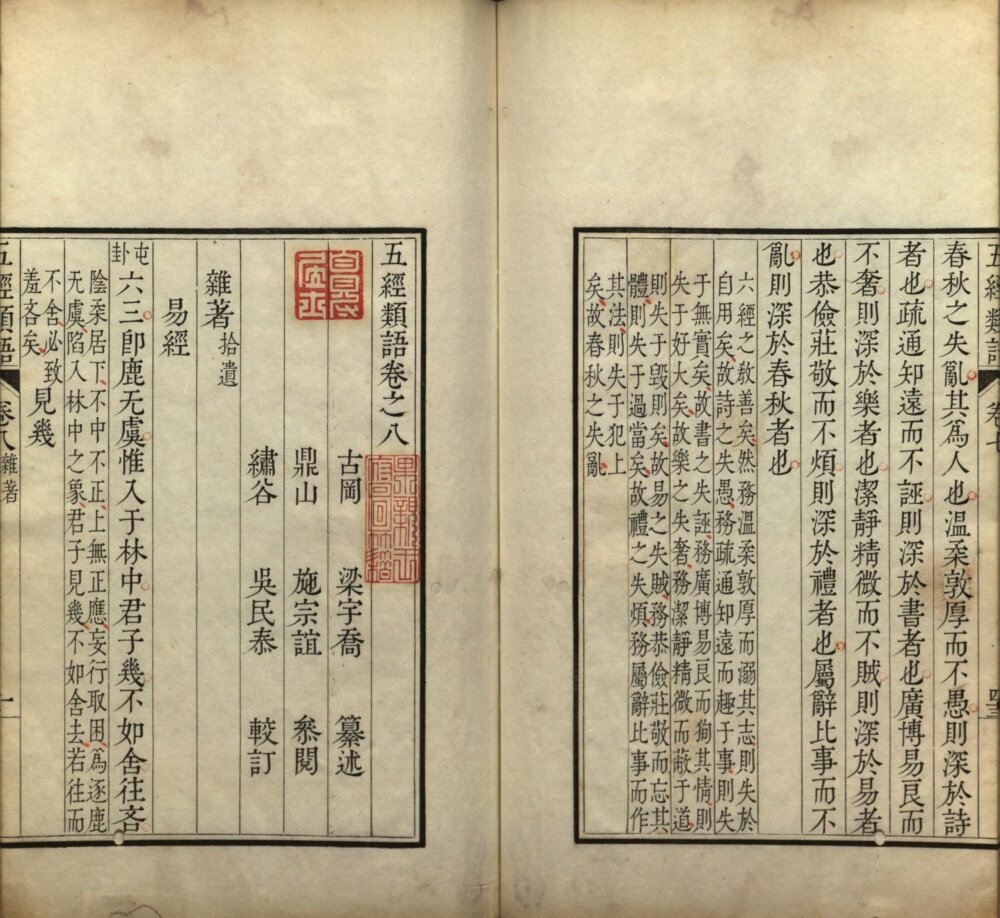 五經類語 卷七
春秋之失亂其爲人也溫柔敦厚而不愚則深於詩
者也疏通知遠而不誣則深於書者也廣博易良而
不奢則深於樂者也潔靜精微而不賊則深於易者
也恭儉莊敬而不煩則深於禮者也屬辭比事而不
亂則深於春秋者也
六經之敎善矣然務溫柔敦厚而溺其志則失於
自用矣故詩之失愚務疏通知遠而趨于事則失
于無實矣故書之失誣務廣博易良而狥其情則
失于好大矣故樂之失奢務潔靜精微而蔽于道
則失于毀則矣故易之失賊務恭儉莊敬而忘其
體則失于過當矣故禮之失煩務屬辭比事而作
其法則失于犯上
矣故春秋之失亂
五經類語卷之八
古岡 梁宇喬 纂述
鼎山 施宗誼 叅閱
繡谷 吳民泰 較訂
雜著 拾遺
易經
屯卦 六三卽鹿无虞惟入于林中君子幾不如舍往吝
陰柔居下不中不正上無正應妄行取困爲逐鹿
无虞陷入林中之象君子見幾不如舍去若往而
不舍必致
羞吝矣
見幾
五經類語 卷八 雜著 一